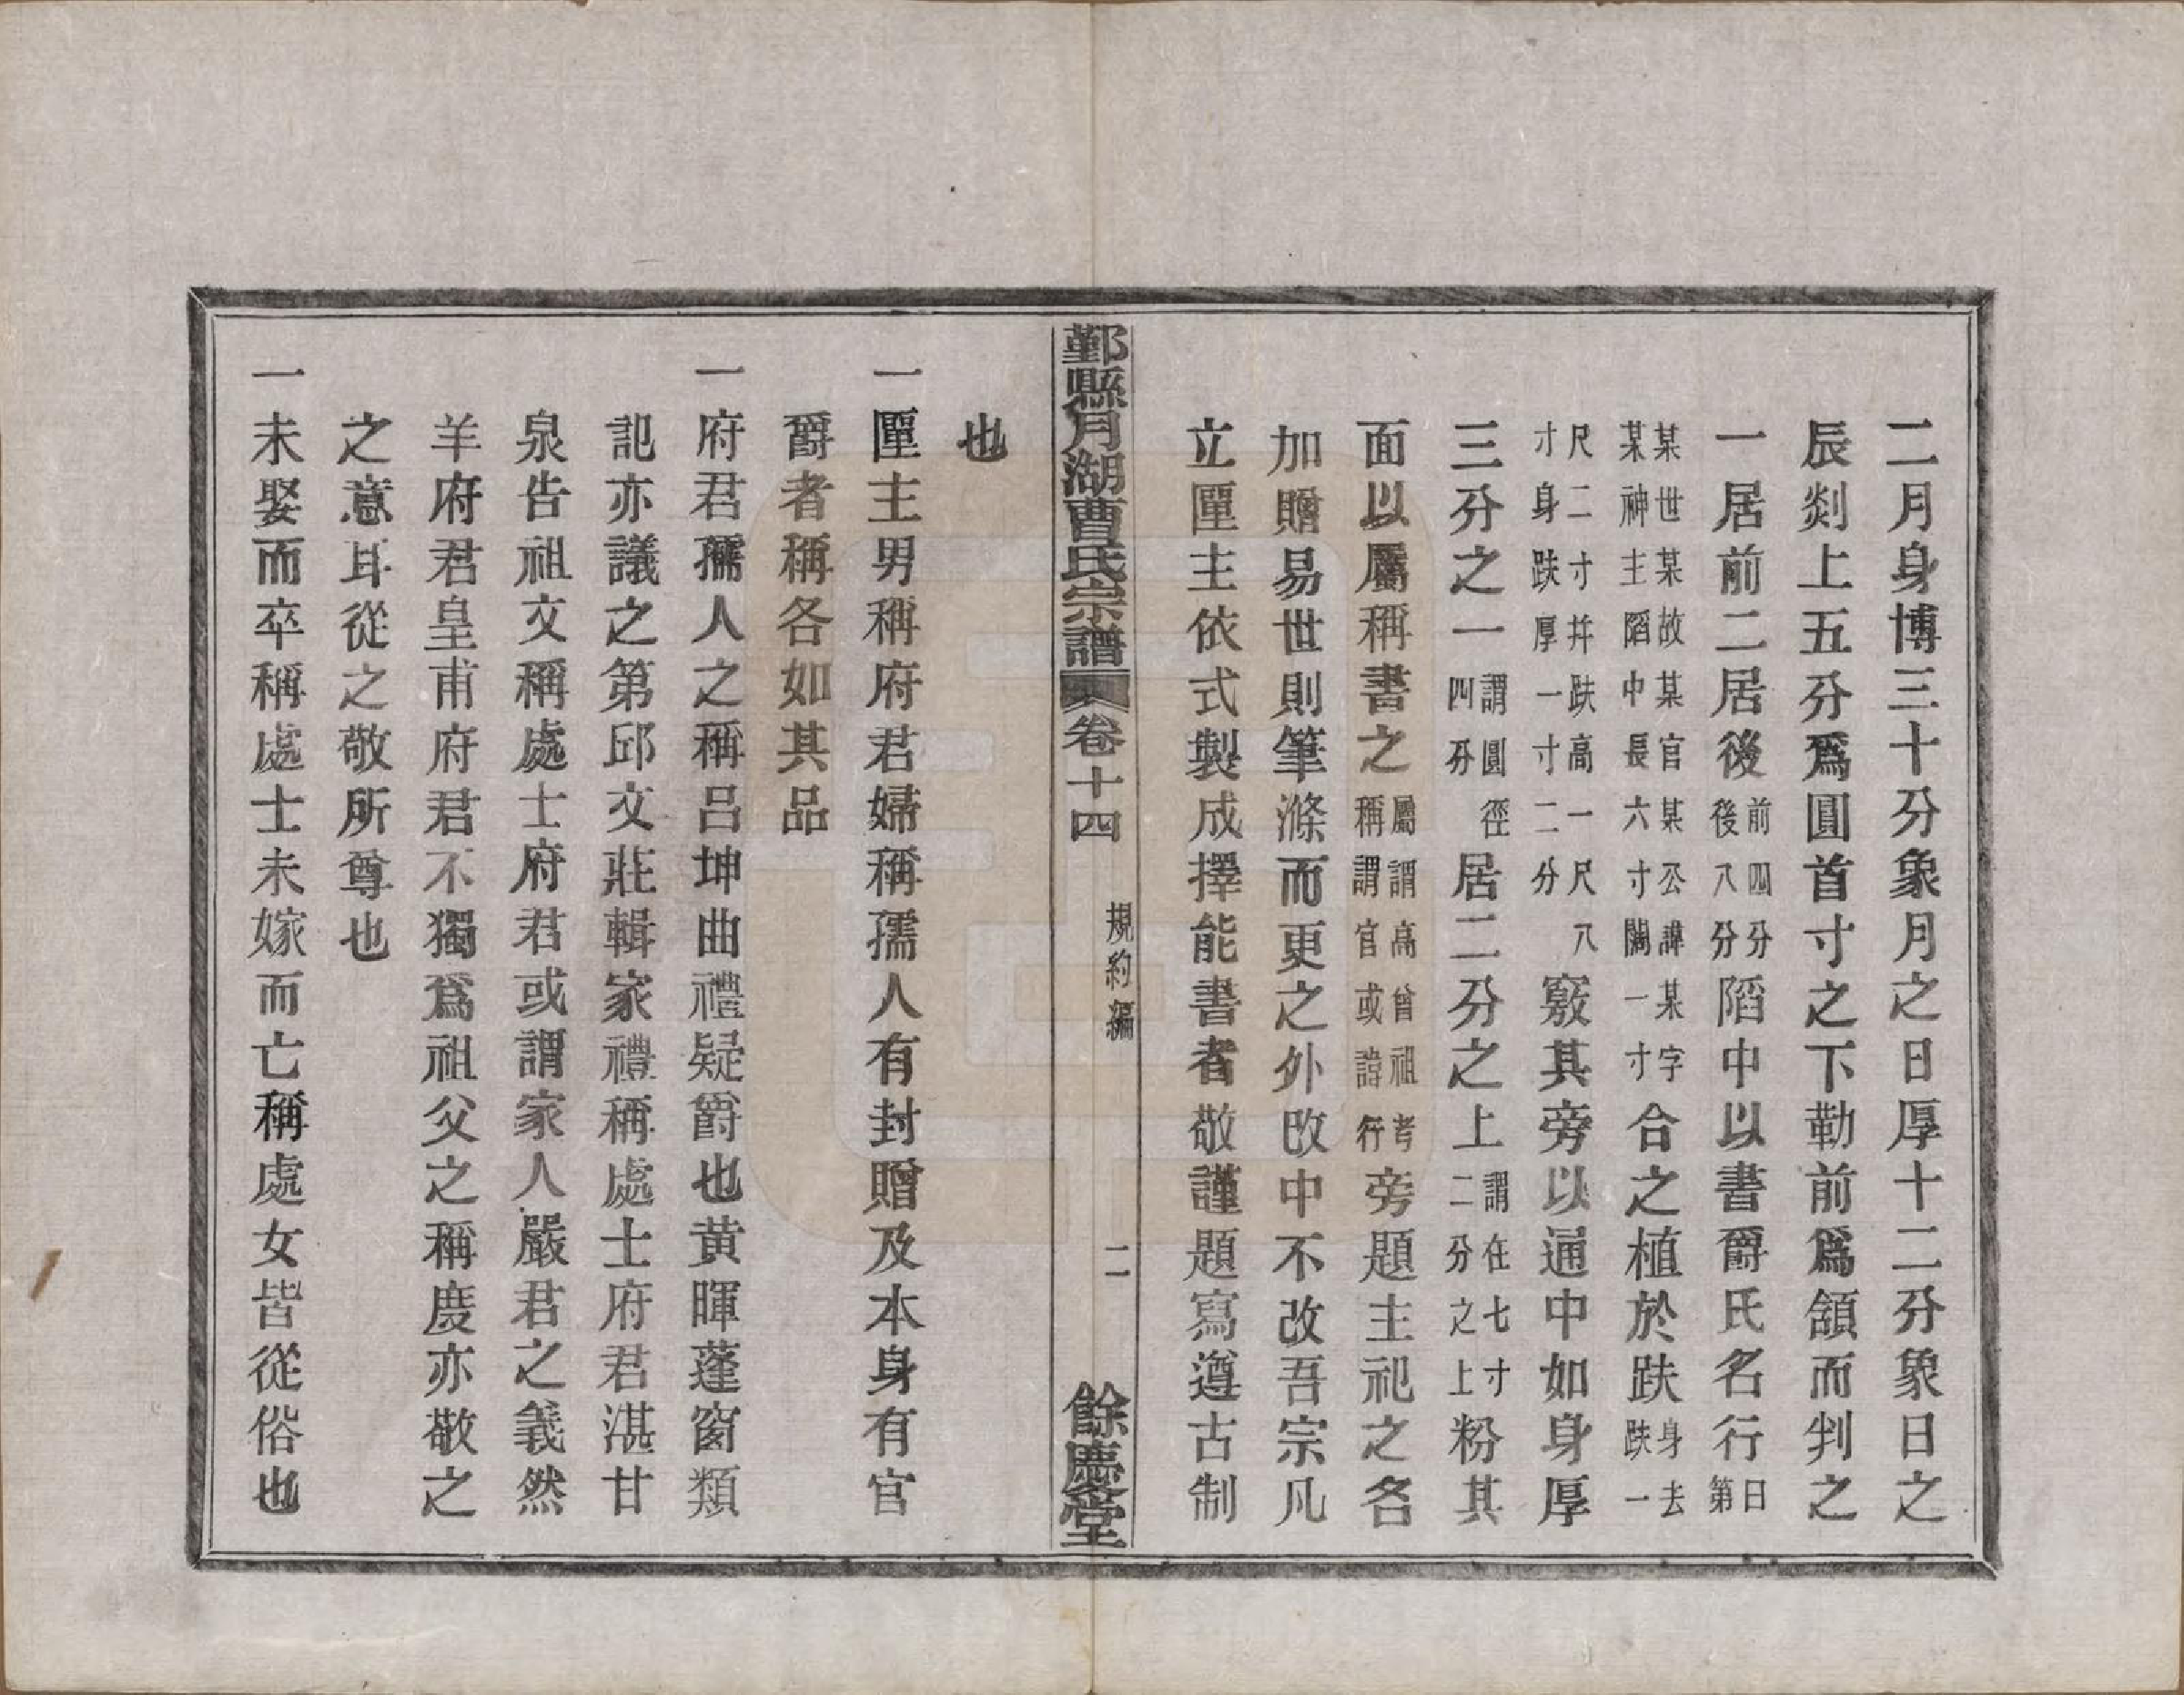 二月身博三十分象月之日厚十二分象日之
辰剡上五分爲圓首寸之下勒前爲頷而判之
一居前二居後前四分後八分陷中以書爵氏名行曰第
某世某故某官某公諱某字某神主陷中長六寸闊一寸合之植於趺身去趺一
尺二寸并趺高一尺八寸身趺厚一寸二分竅其旁以通中如身厚
三分之一謂圓徑四分居二分之上謂在七寸二分之上粉其
面以屬稱書之屬謂高曾祖考稱謂官或諱行旁題主祀之名
加贈易世則筆滌而更之外改中不改吾宗凡
立匰主依式製成擇能書者敬謹題寫遵古制
鄞縣月湖曹氏宗譜 卷十四 規約編 二 餘慶堂
也
一匰主男稱府君婦稱孺人有封贈及本身有官
爵者稱各如其品
一府君孺人之稱呂坤曲禮疑爵也黄暉蓬窗類
記亦議之第邱文莊輯家禮稱處士府君湛甘
泉告祖文稱處士府君或謂家人嚴君之義然
羊府君皇甫府君不獨爲祖父之稱慶亦敬之
之意耳從之敬所尊也
一未娶而卒稱處士未嫁而亡稱處女皆從俗也